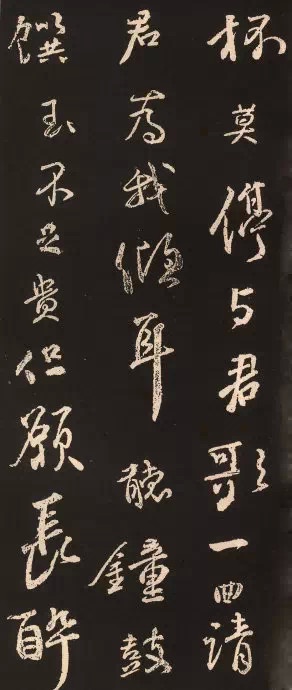 杯莫停與君歌一曲請
君為我傾耳聽鐘鼓
饌玉不足貴但願長醉